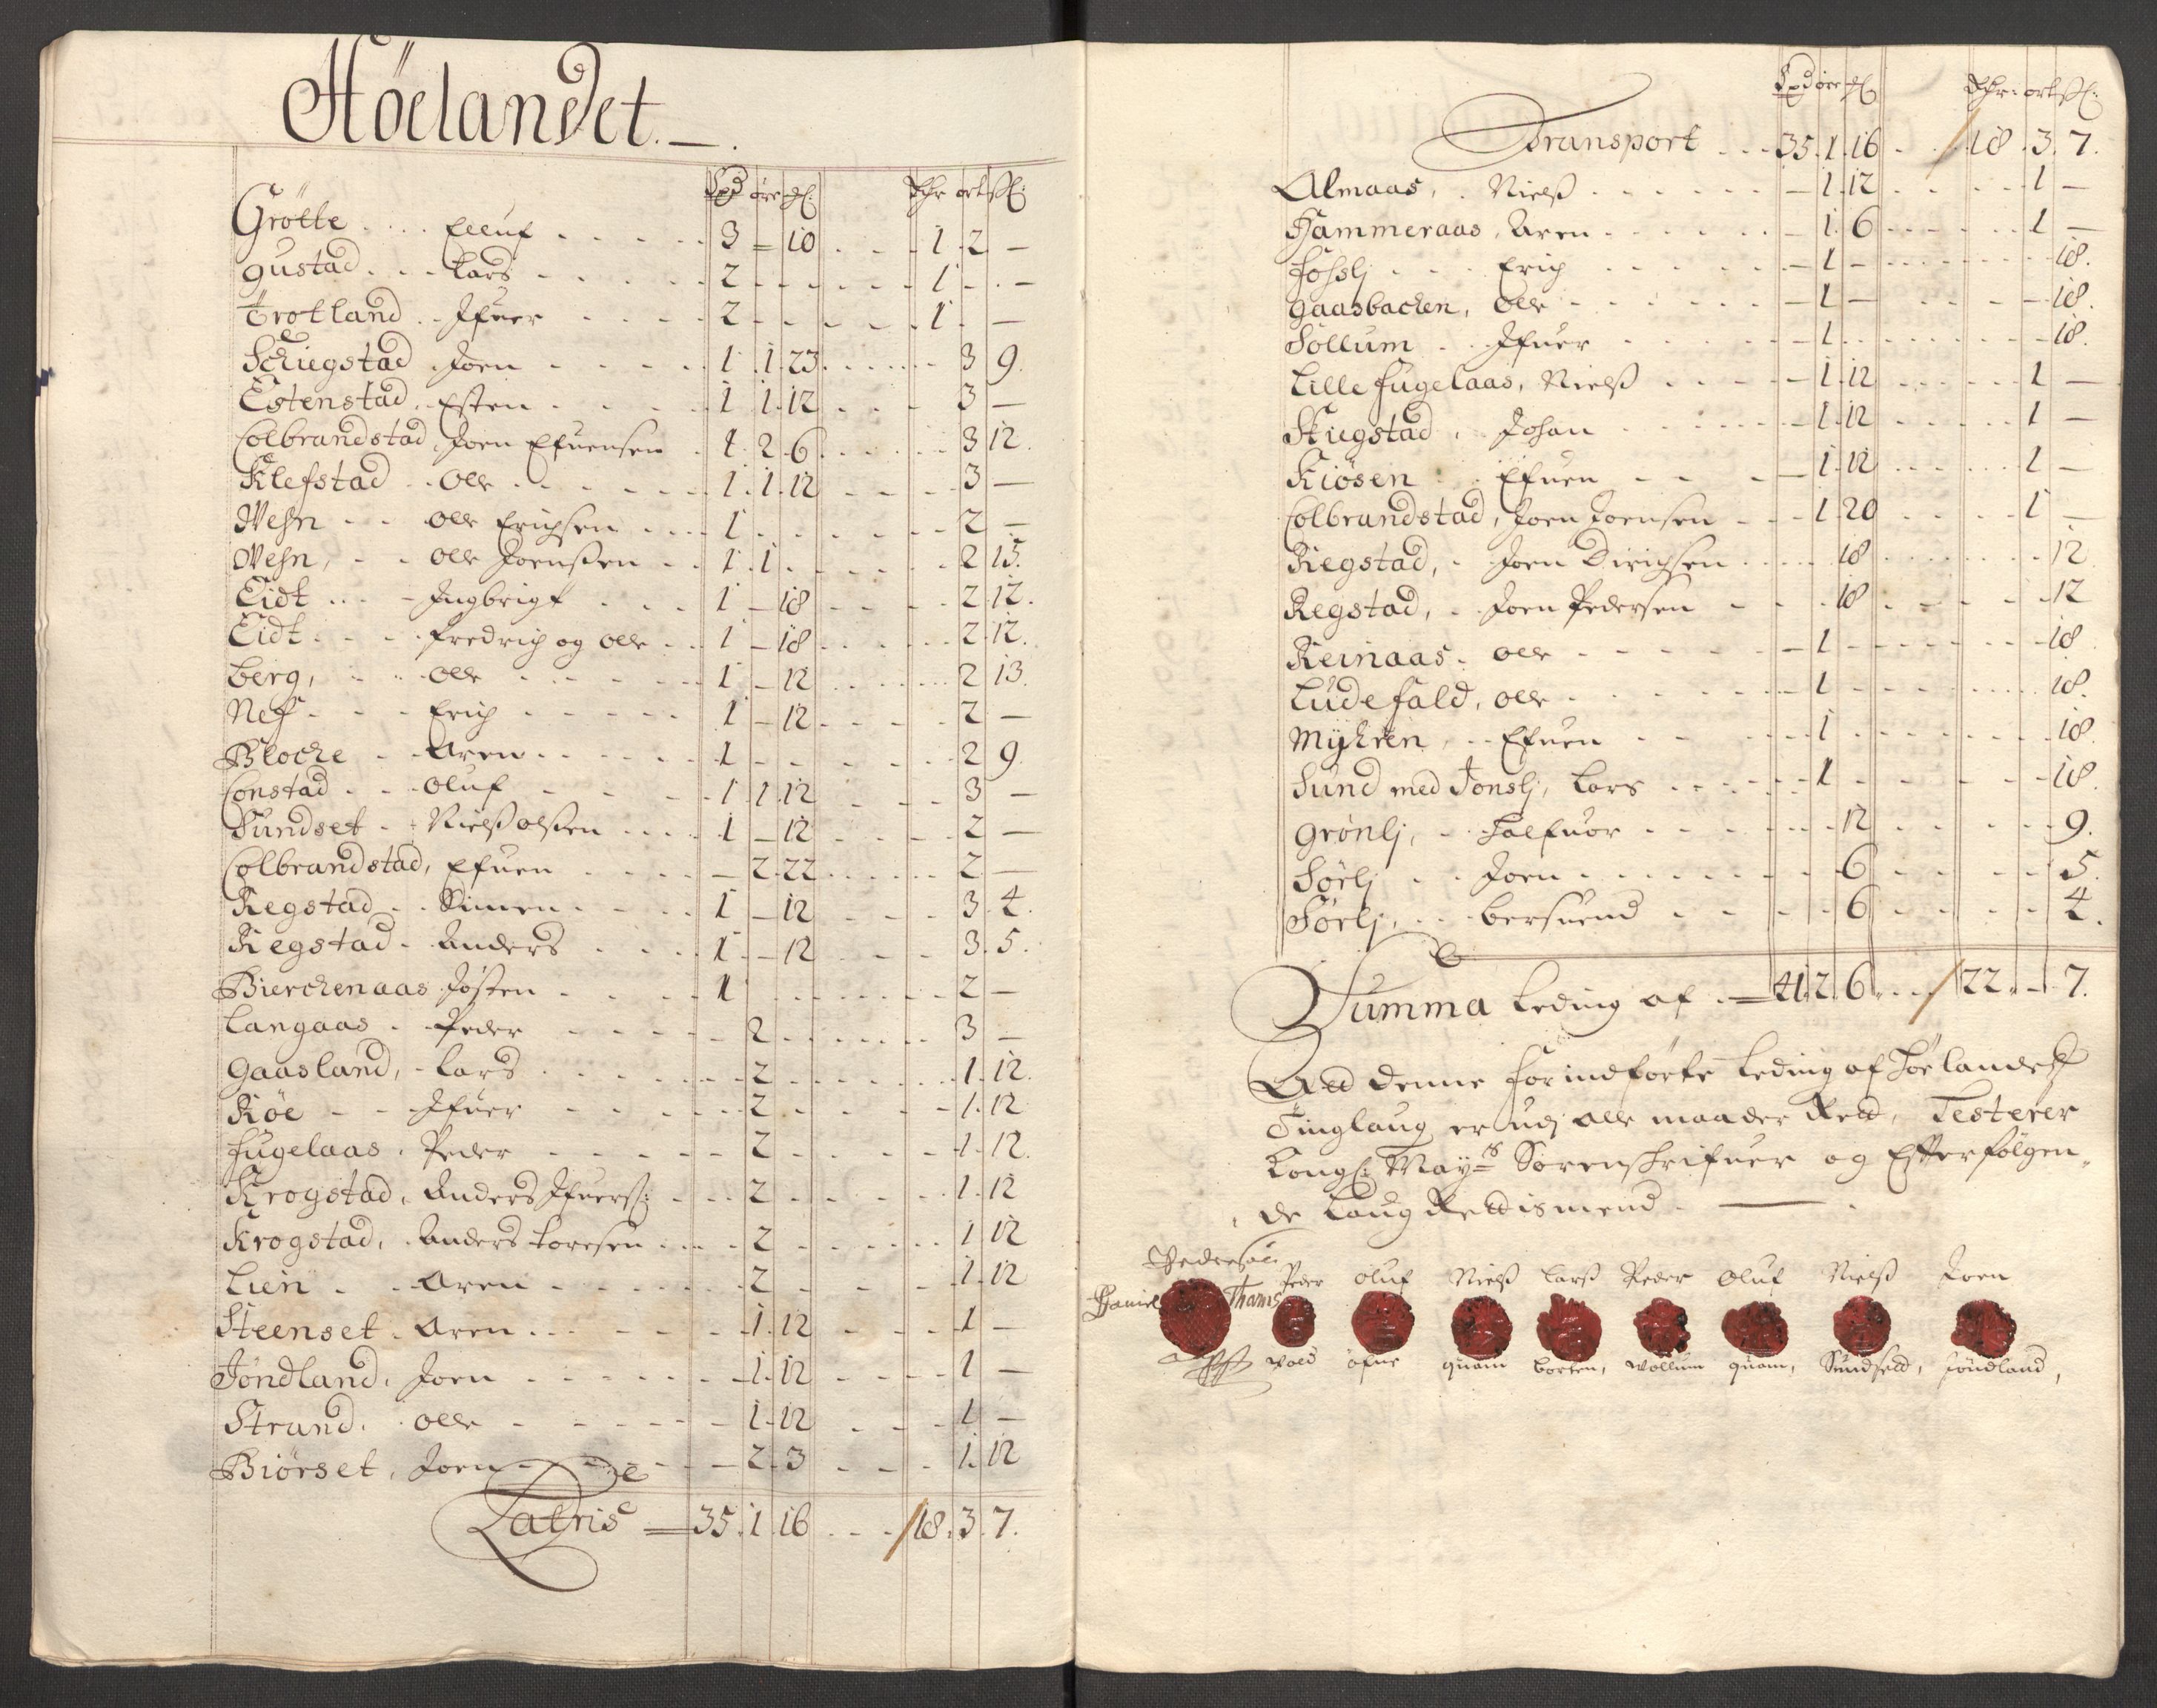 Höelandet. —
Spd øre ß: Rdr ort ß:
Grötte . . . Elluf . . . 3 – 10 . . 1 . 2 . —
gustad . . . Lars . . . 2 . . . 1 . – . —
Trotland . . Ifuer . . . 2 . . . 1 . —
Schiegstad . Joen . . . 1 . 1 . 23 . . . 3 9.
Estenstad . Esten . . . 1 1. 12 . . . 3 —
Colbrandstad, Joen Efuensen . 1. 2. 6 . . . 3 12.
Klefstad . . Olle . . . 1. 1. 12 . . . 3 —
Wehn . . . Olle Erichsen . . . 1 . . . 2 . —
Wehn, . . . Olle Joensen . . 1. 1 . . . 2 15.
Eidt . . . Ingbrigt . . . 1 – 18 . . . 2. 12.
Eidt . . . fredrich og Olle . . 1 – 18 . . . 2. 12.
Berg, . . . Olle . . . 1 – 12 . . . 2 13.
Nef . . . Erich . . . 1 – 12 . . . 2 —
Blocke . . Aren . . . 1 . . . 2 9.
Constad . . . Oluf . . . 1. 1. 12 . . . 3 —
Sundset . . Nielß olßen . . . 1 – 12 . . . 2 —
Colbrandstad, Efuen . . . – 2. 22 . . . 2 —
Regstad . . Simen . . . 1 – 12 . . . 3. 4.
Regstad . . Anders . . . 1 – 12 . . . 3. 5.
Bierckenaas Jösten . . . 1 . . . 2 —
Langaas . . Peder . . . – 2 . . . 3 —
Gaasland, . Lars . . . 2 . . . 1. 12.
Röe . . . Ifuer . . . 2 . . . 1. 12
fugelaas . Peder . . . 2 . . . 1. 12.
Krogstad, Anders Ifuers: . . . 2 . . . 1. 12
Krogstad, . Anders toresen . . . 2 . . . 1 12
Lien . . . Aren . . . 2 . . . 1. 12
Steenset . Aren . . . 1. 12 . . . 1 —
Jöndland, Joen . . . 1. 12 . . . 1 —
Strand, . Olle . . . 1. 12 . . . 1 —
Biörset, Joen . . . 2. 3 . . . 1. 12
Latris — 35. 1 16 . . . 18. 3. 7.
Spd øre ß: Rdr ort ß:
Transport . . . 35. 1. 16 . . . 18 . 3. 7.
Almaas, . Nielß . . . – 1. 12 . . . 1 —
Hammeraas, Aren . . . – 1. 6 . . . 1 —
Fosslj . . . Erich . . . – 1 – . . . 18.
gaasbacken, Olle . . . – 1 — . . . 18.
Sollum . . Ifuer . . . – 1 . . . 18.
Lille fugelaas, Nielß . . . – 1. 12 . . . 1 —
Skiegstad, Johan . . . – 1. 12 . . . 1 —
Kiösen . . Efuen . . . – 1. 12 . . . 1 —
Colbrandstad, Joen Joensen . . . 1 20 . . . 1 —
Regstad, . Joen Dirichsen . . . 18 . . . 12
Regstad, . . Joen Pedersen . . . 18 . . . 12
Reinaas . Olle . . . – 1 . . . 18
Ludefald, Olle . . . 1 . . . 18.
Myhren, . . Efuen . . . 1 . . . 18.
Sund med Jonslj, Lars . . . 1 . . . 18.
grönlj, . . Halfuor . . . 12 . . . 9.
Sörlj . . Joen . . . 6 . . . 5.
Sörlj, . . bersuend . . . 6 . . . 4.
Summa Leding af . — 41. 2. 6 . . . 22 . – . 7.
Att denne forindförte Leding af Höelandetz
Tinglaug er udj alle maader Rett, Testerer
Kongl: May:ts Sorenskrifuer og Efterfölgen„
de Laug Rettismend. —
Pedersöl
Daniel Thams Peder Oluf Nielß Larß Peder Oluf Nielß Joen
vold öfue quam borten, vollum quam, Sundsett, jöndland,